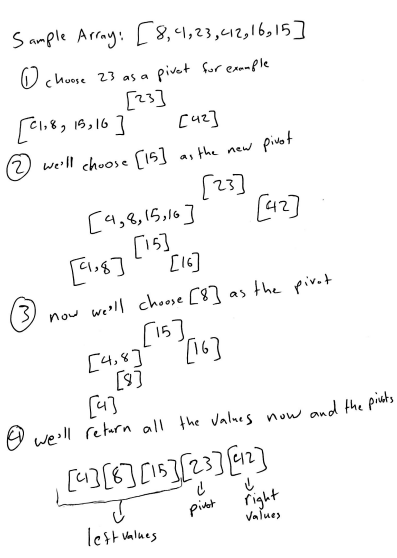 Sample Array: [8,4,23,42,16,15]
① choose 23 as a pivot for example
[23]
[4,8, 15,16] [42]
② we'll choose [15] as the new pivot
[23]
[4,8,15,16] [42]
[15]
[4,8] [16]
③ now we'll choose [8] as the pivot
[15]
[4,8] [16]
[8]
[4]
④ we'll return all the values now and the pivots
[4][8][15][23][42]
left values pivot right values